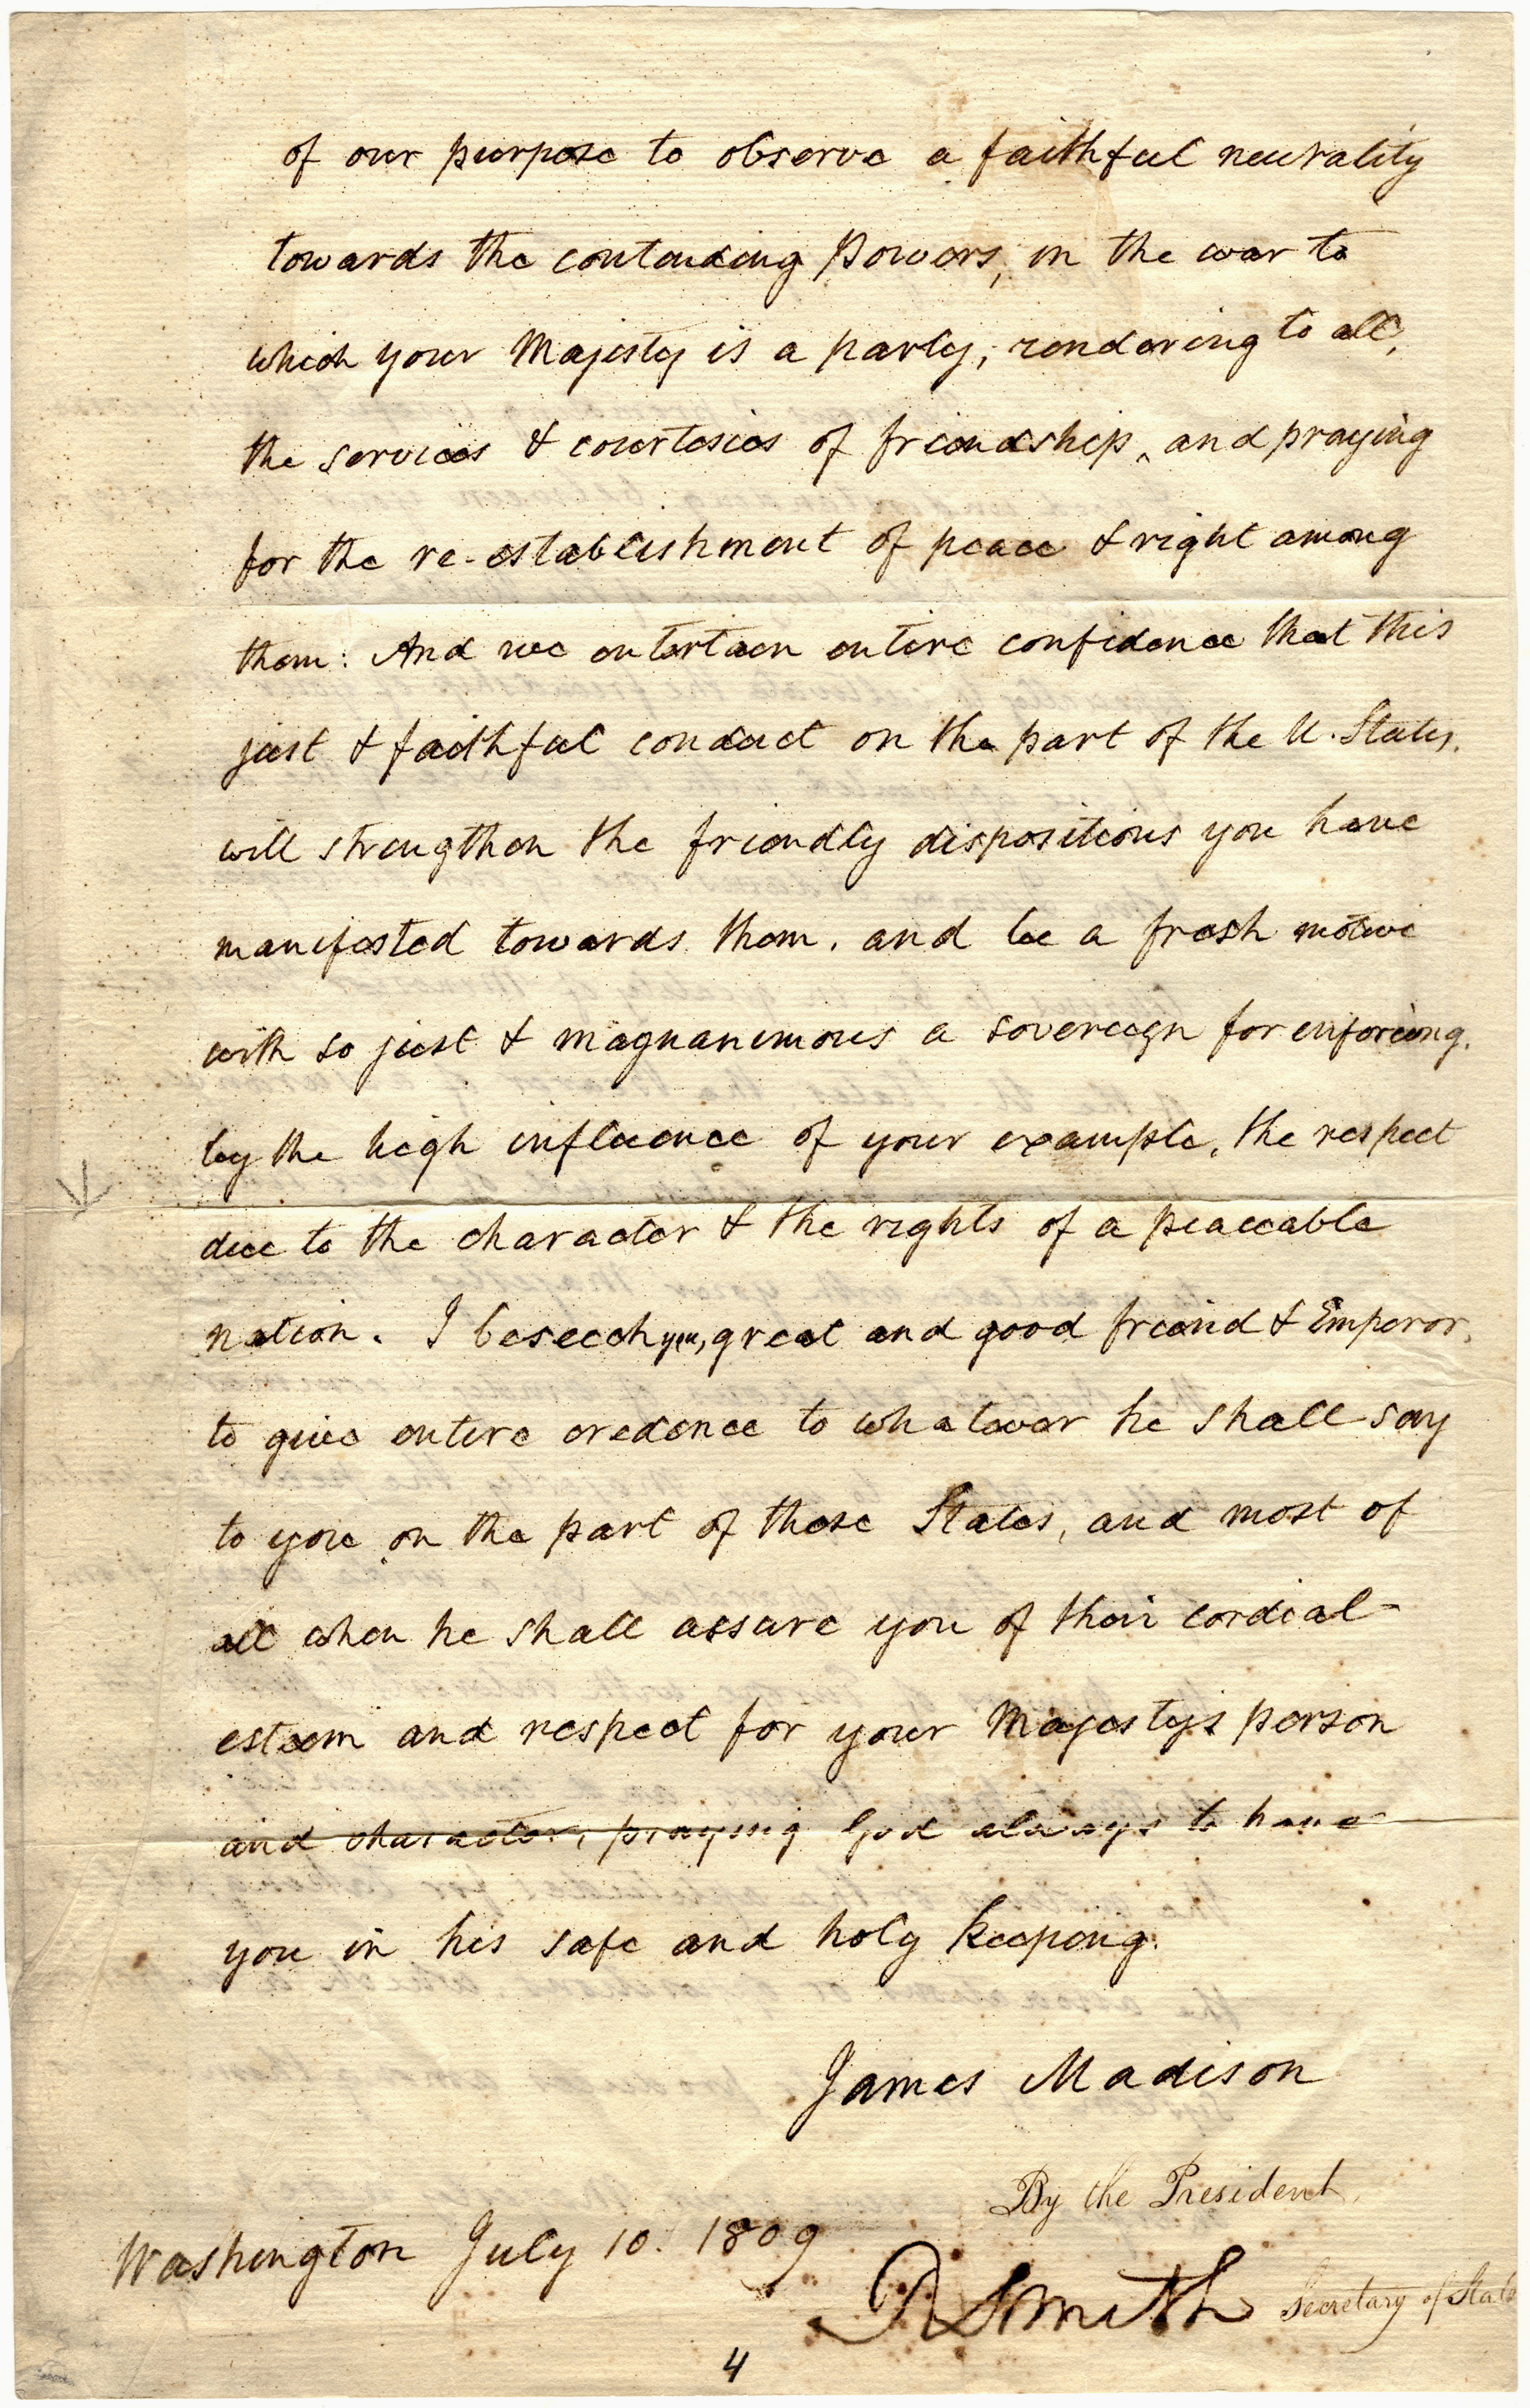 of our purpose to observe a faithful neutrality
towards the contending Powers, in the war to
which your Majesty is a party; rendering to all,
the services & courtesies of friendship, and praying
for the re-establishment of peace & right among
them: And we entertain entire confidence that this
just & faithful conduct on the part of the U. States,
will strengthen the friendly dispositions you have
manifested towards them, and be a fresh motive
with so just & magnanimous a sovereign for enforcing,
by the high influence of your example, the respect
due to the character & the rights of a peaceable
nation. I beseech you, great and good friend & Emperor,
to give entire credence to whatever he shall say
to you on the part of these States, and most of
all when he shall assure you of their cordial
esteem and respect for your Majesty's person
and character, praying God always to have
you in his safe and holy keeping.
James Madison
By the President,
Washington July 10. 1809
R Smith Secretary of State
4